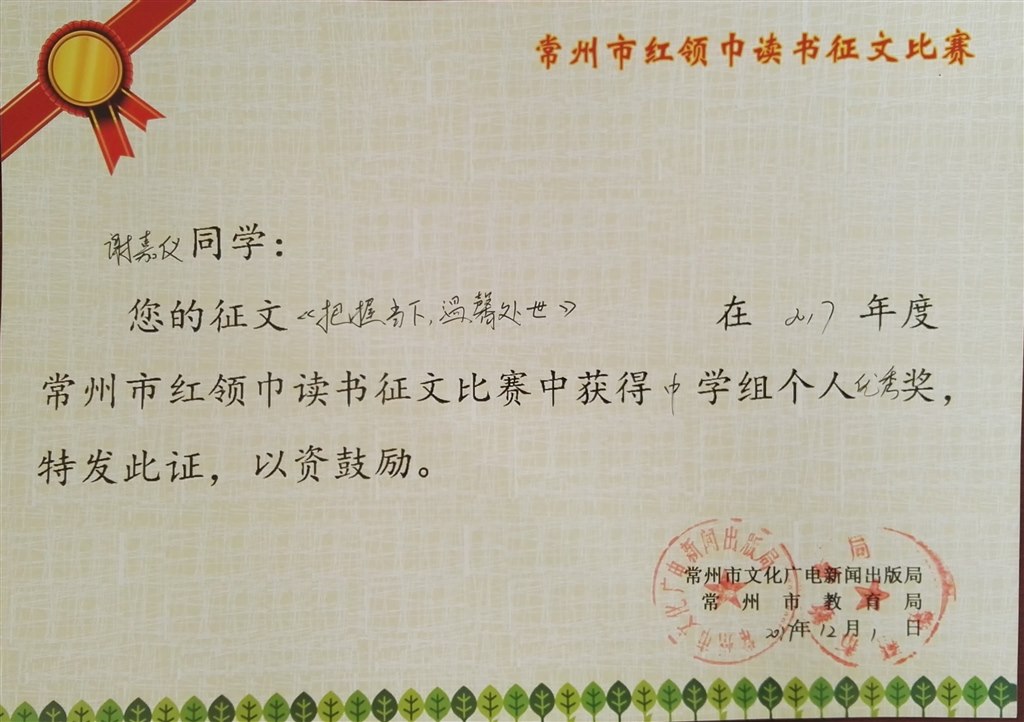 常州市红领巾读书征文比赛
谢嘉仪同学：
您的征文《把握当下，温馨处世》 在 2017 年度
常州市红领巾读书征文比赛中获得中学组个人优秀奖，
特发此证，以资鼓励。
常州市文化广电新闻出版局
常州市教育局
2017年12月1日